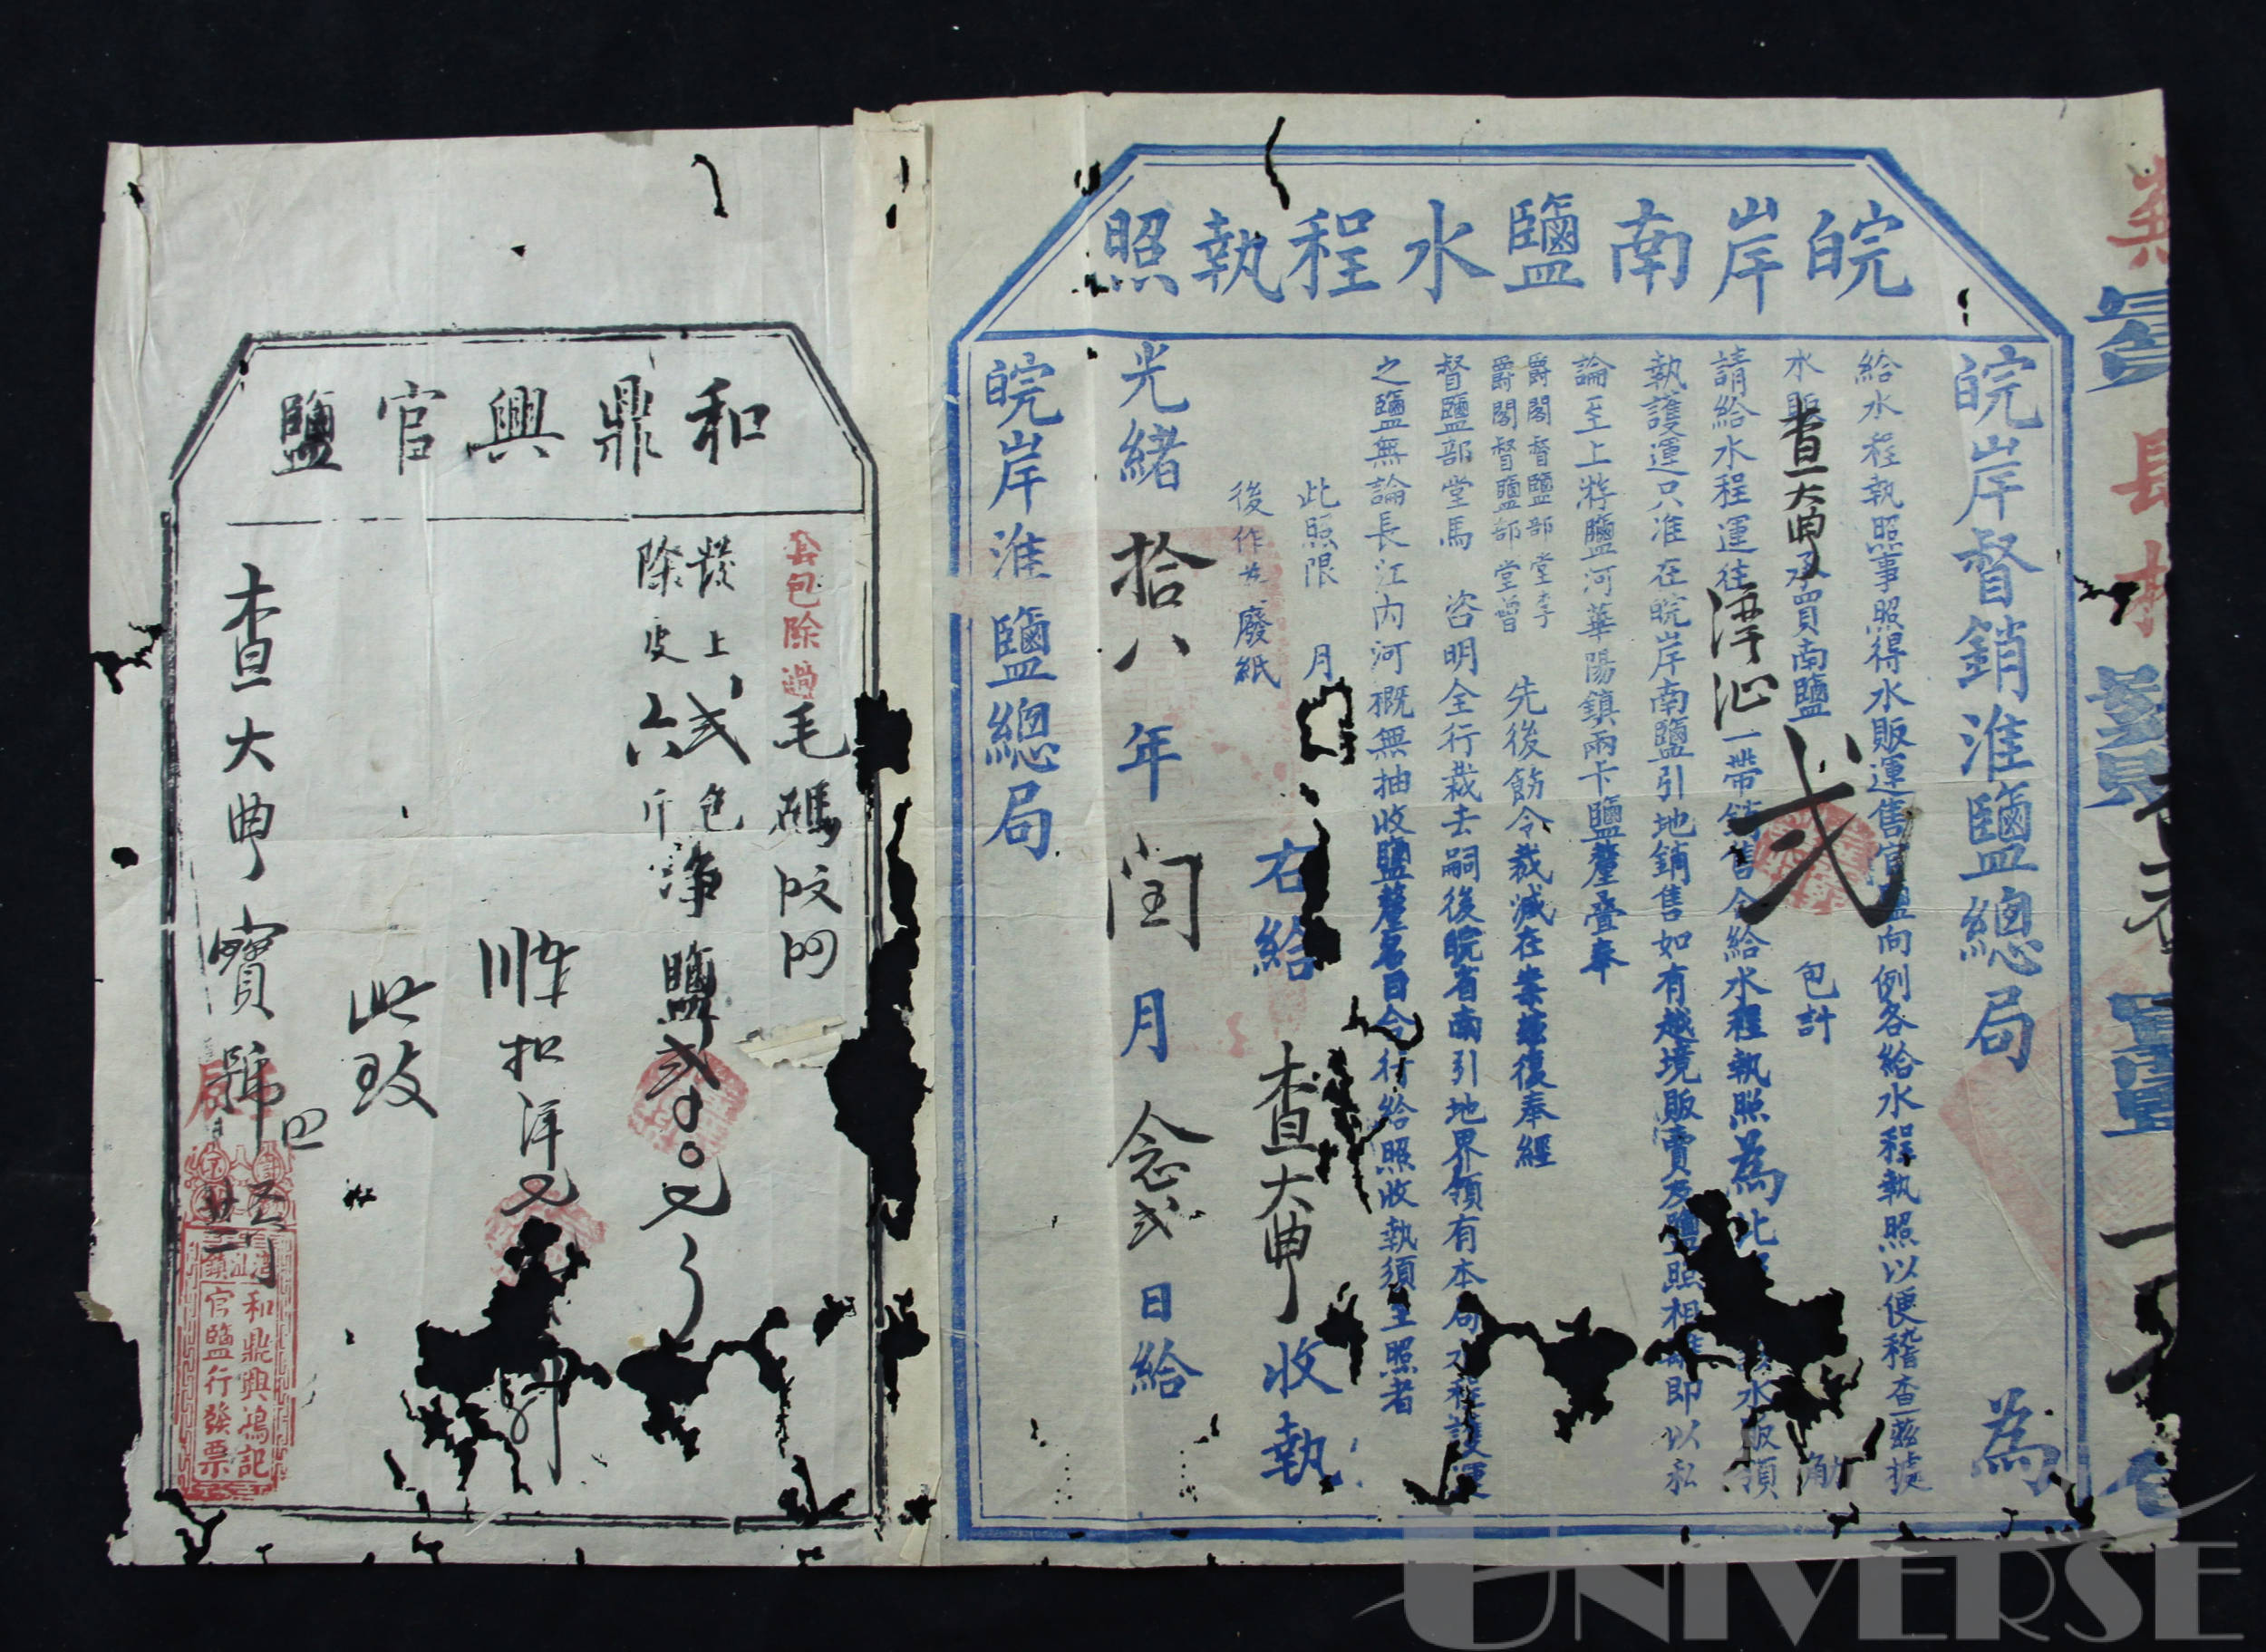 皖岸南鹽水程執照
皖岸督銷淮鹽總局 為
給水程執照事照得水販運售官鹽向例各給水程執照以便稽查茲據
水販查大典承買南鹽 弍 包計
請給水程運往 一帶銷售合給水程執照為此 水販領
執護運只准在皖岸南鹽引地銷售如有越境販賣及鹽照相離即以私
論至上游鹽河華陽鎮兩卡鹽釐疊奉
爵閣督鹽部堂李
爵閣督鹽部堂曾
先後飭令裁減在案茲復奉經
督鹽部堂馬 咨明全行裁去嗣後皖省南引地界領有本局水程護運
之鹽無論長江內河概無抽收鹽釐名目合行給照收執須至照者
此照限 月
後作為廢紙
右給 查大典 收執
光緒拾八年閏月念弍日給
皖岸淮鹽總局
和鼎興官鹽
去包除過毛碼
發上弍包
除皮六斤
淨鹽
扣洋
此致
查大典寶號
和鼎興鴻記
鎮官鹽行發票
UNIVERSE